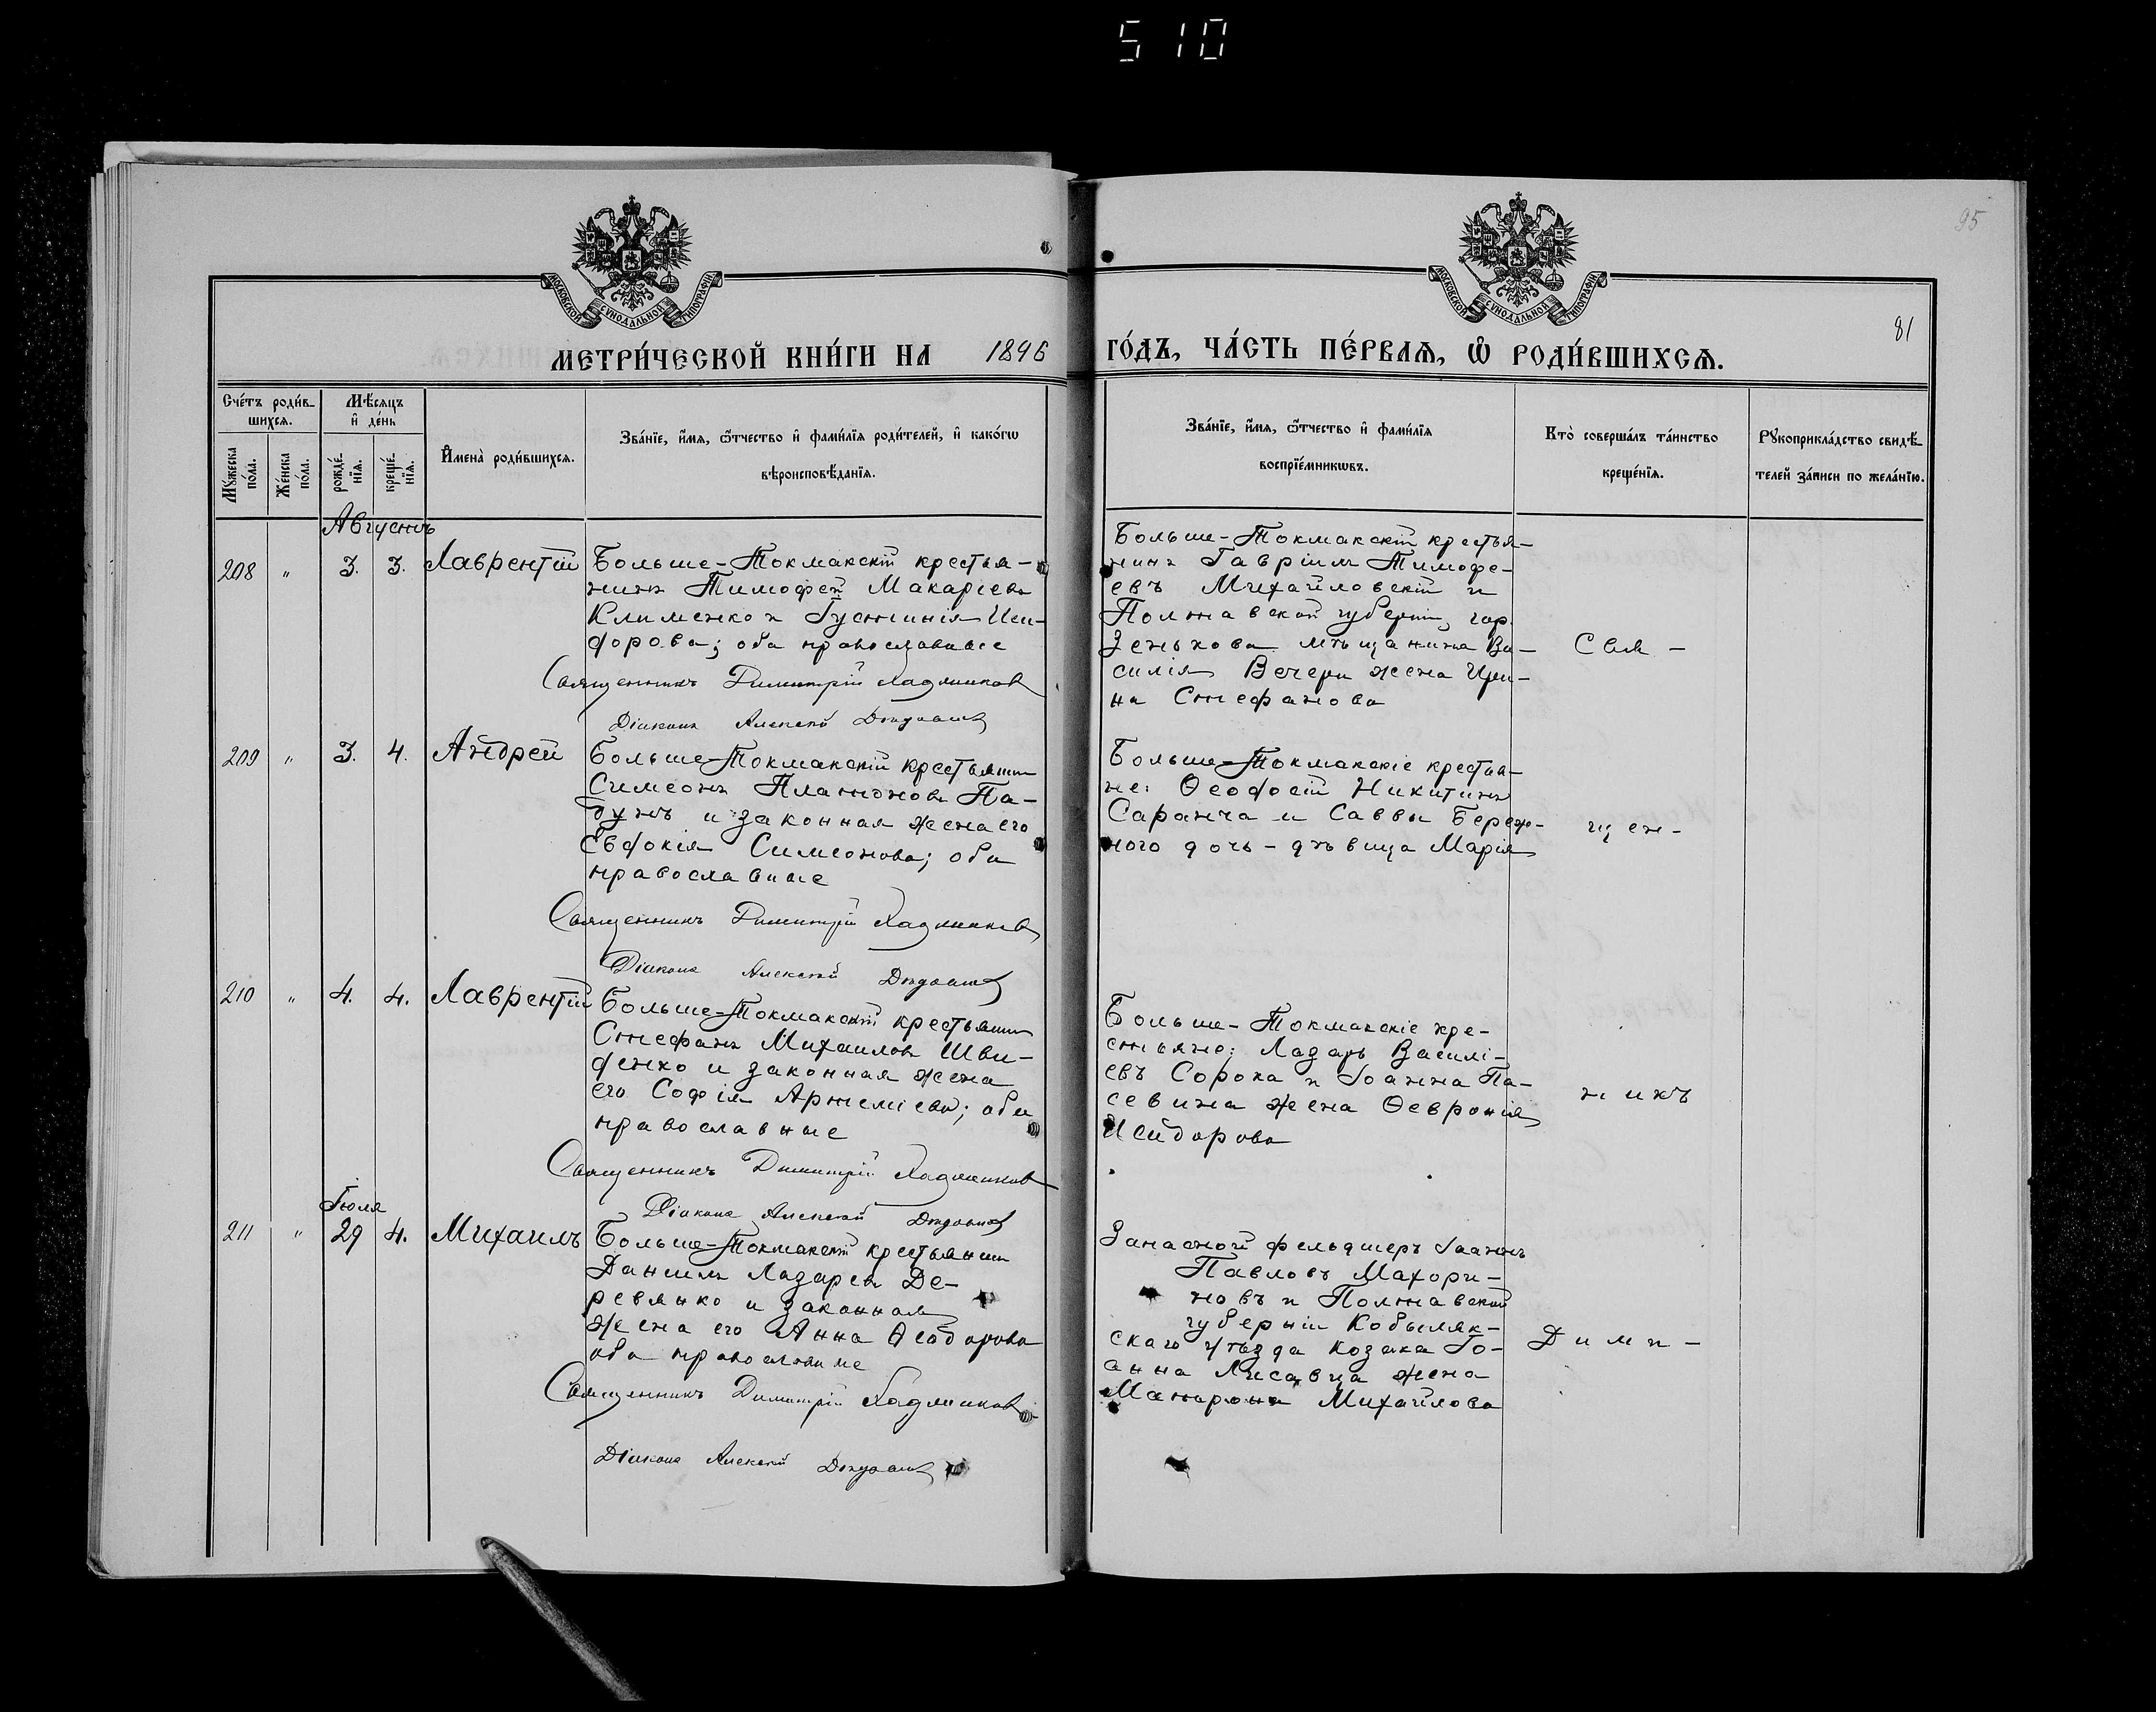 510
95
МОСКОВСКОЙ СѴНОДАЛЬНОЙ ТИПОГРАФІИ
МОСКОВСКОЙ СѴНОДАЛЬНОЙ ТИПОГРАФІИ
81
МЕТРИ́ЧЕСКОЙ КНИ́ГИ НА 1896 ГО́ДЪ, ЧА́СТЬ ПЕ́РВАѦ, Ѡ҆ РОДИ́ВШИХСѦ.
Сче́тъ роди́в-
шихсѧ.
Мѣ́сѧцъ
и҆ де́нь
Мꙋ́жеска
по́ла.
Же́нска
по́ла.
рожде́-
нїѧ.
креще́-
нїѧ.
И҆мена̀ роди́вшихсѧ.
Зва́нїе, и҆́мѧ, ѻ҆́тчество и҆ фами́лїѧ роди́телей, и҆ како́гѡ
вѣроисповѣ́данїѧ.
Зва́нїе, и҆́мѧ, ѻ҆́тчество и҆ фами́лїѧ
воспрїе́мникѡвъ.
Кто̀ соверша́лъ та́инство
креще́нїѧ.
Рꙋкоприкла́дство свидѣ́-
телей за́писи по жела́нїю.
Августъ
208 " 3. 3. Лаврентій
Больше-Токмакскій крестья-
нинъ Тимофей Макаріевъ
Клименко и Іустинія Иси-
дорова; оба православные
Священникъ Димитрій
Діаконъ Алексій
Больше-Токмакскій крестья-
нинъ Гавріилъ Тимофе-
евъ Михайловскій и
Полтавской губерніи, гор.
Зенькова мѣщанина Ва-
силія Вечери жена Ири-
на Стефанова
Свя-
209 " 3. 4. Андрей
Больше-Токмакскій крестьянинъ
Симеонъ Платоновъ Па-
бунъ и законная жена его
Евдокія Симеонова; оба
православные
Священникъ Димитрій
Діаконъ Алексій
Больше-Токмакскіе крестья-
не: Ѳеодосій Никитинъ
Саранча и Саввы Береж-
ного дочь-дѣвица Марія
щен-
210 " 4. 4. Лаврентій
Больше-Токмакскій крестьянинъ
Стефанъ Михаиловъ Шви-
денко и законная жена
его Софія Артеміева; оба
православные
Священникъ Димитрій
Діаконъ Алексій
Больше-Токмакскіе кре-
стьяне: Лазарь Василі-
евъ Сорока и Іоанна Па-
севина жена Ѳевронія
Исидорова
никъ
Іюля
211 " 29 4. Михаилъ
Больше-Токмакскій крестьянинъ
Даніилъ Лазаревъ Де-
ревянко и законная
жена его Анна Ѳеодорова
оба православные
Священникъ Димитрій
Діаконъ Алексій
Запасной фельдшеръ Іоаннъ
Павловъ Махори-
новъ и Полтавской
губерніи Кобыляк-
скаго уѣзда козака Іо-
анна Лисавца жена
Матрона Михайлова
Дими-